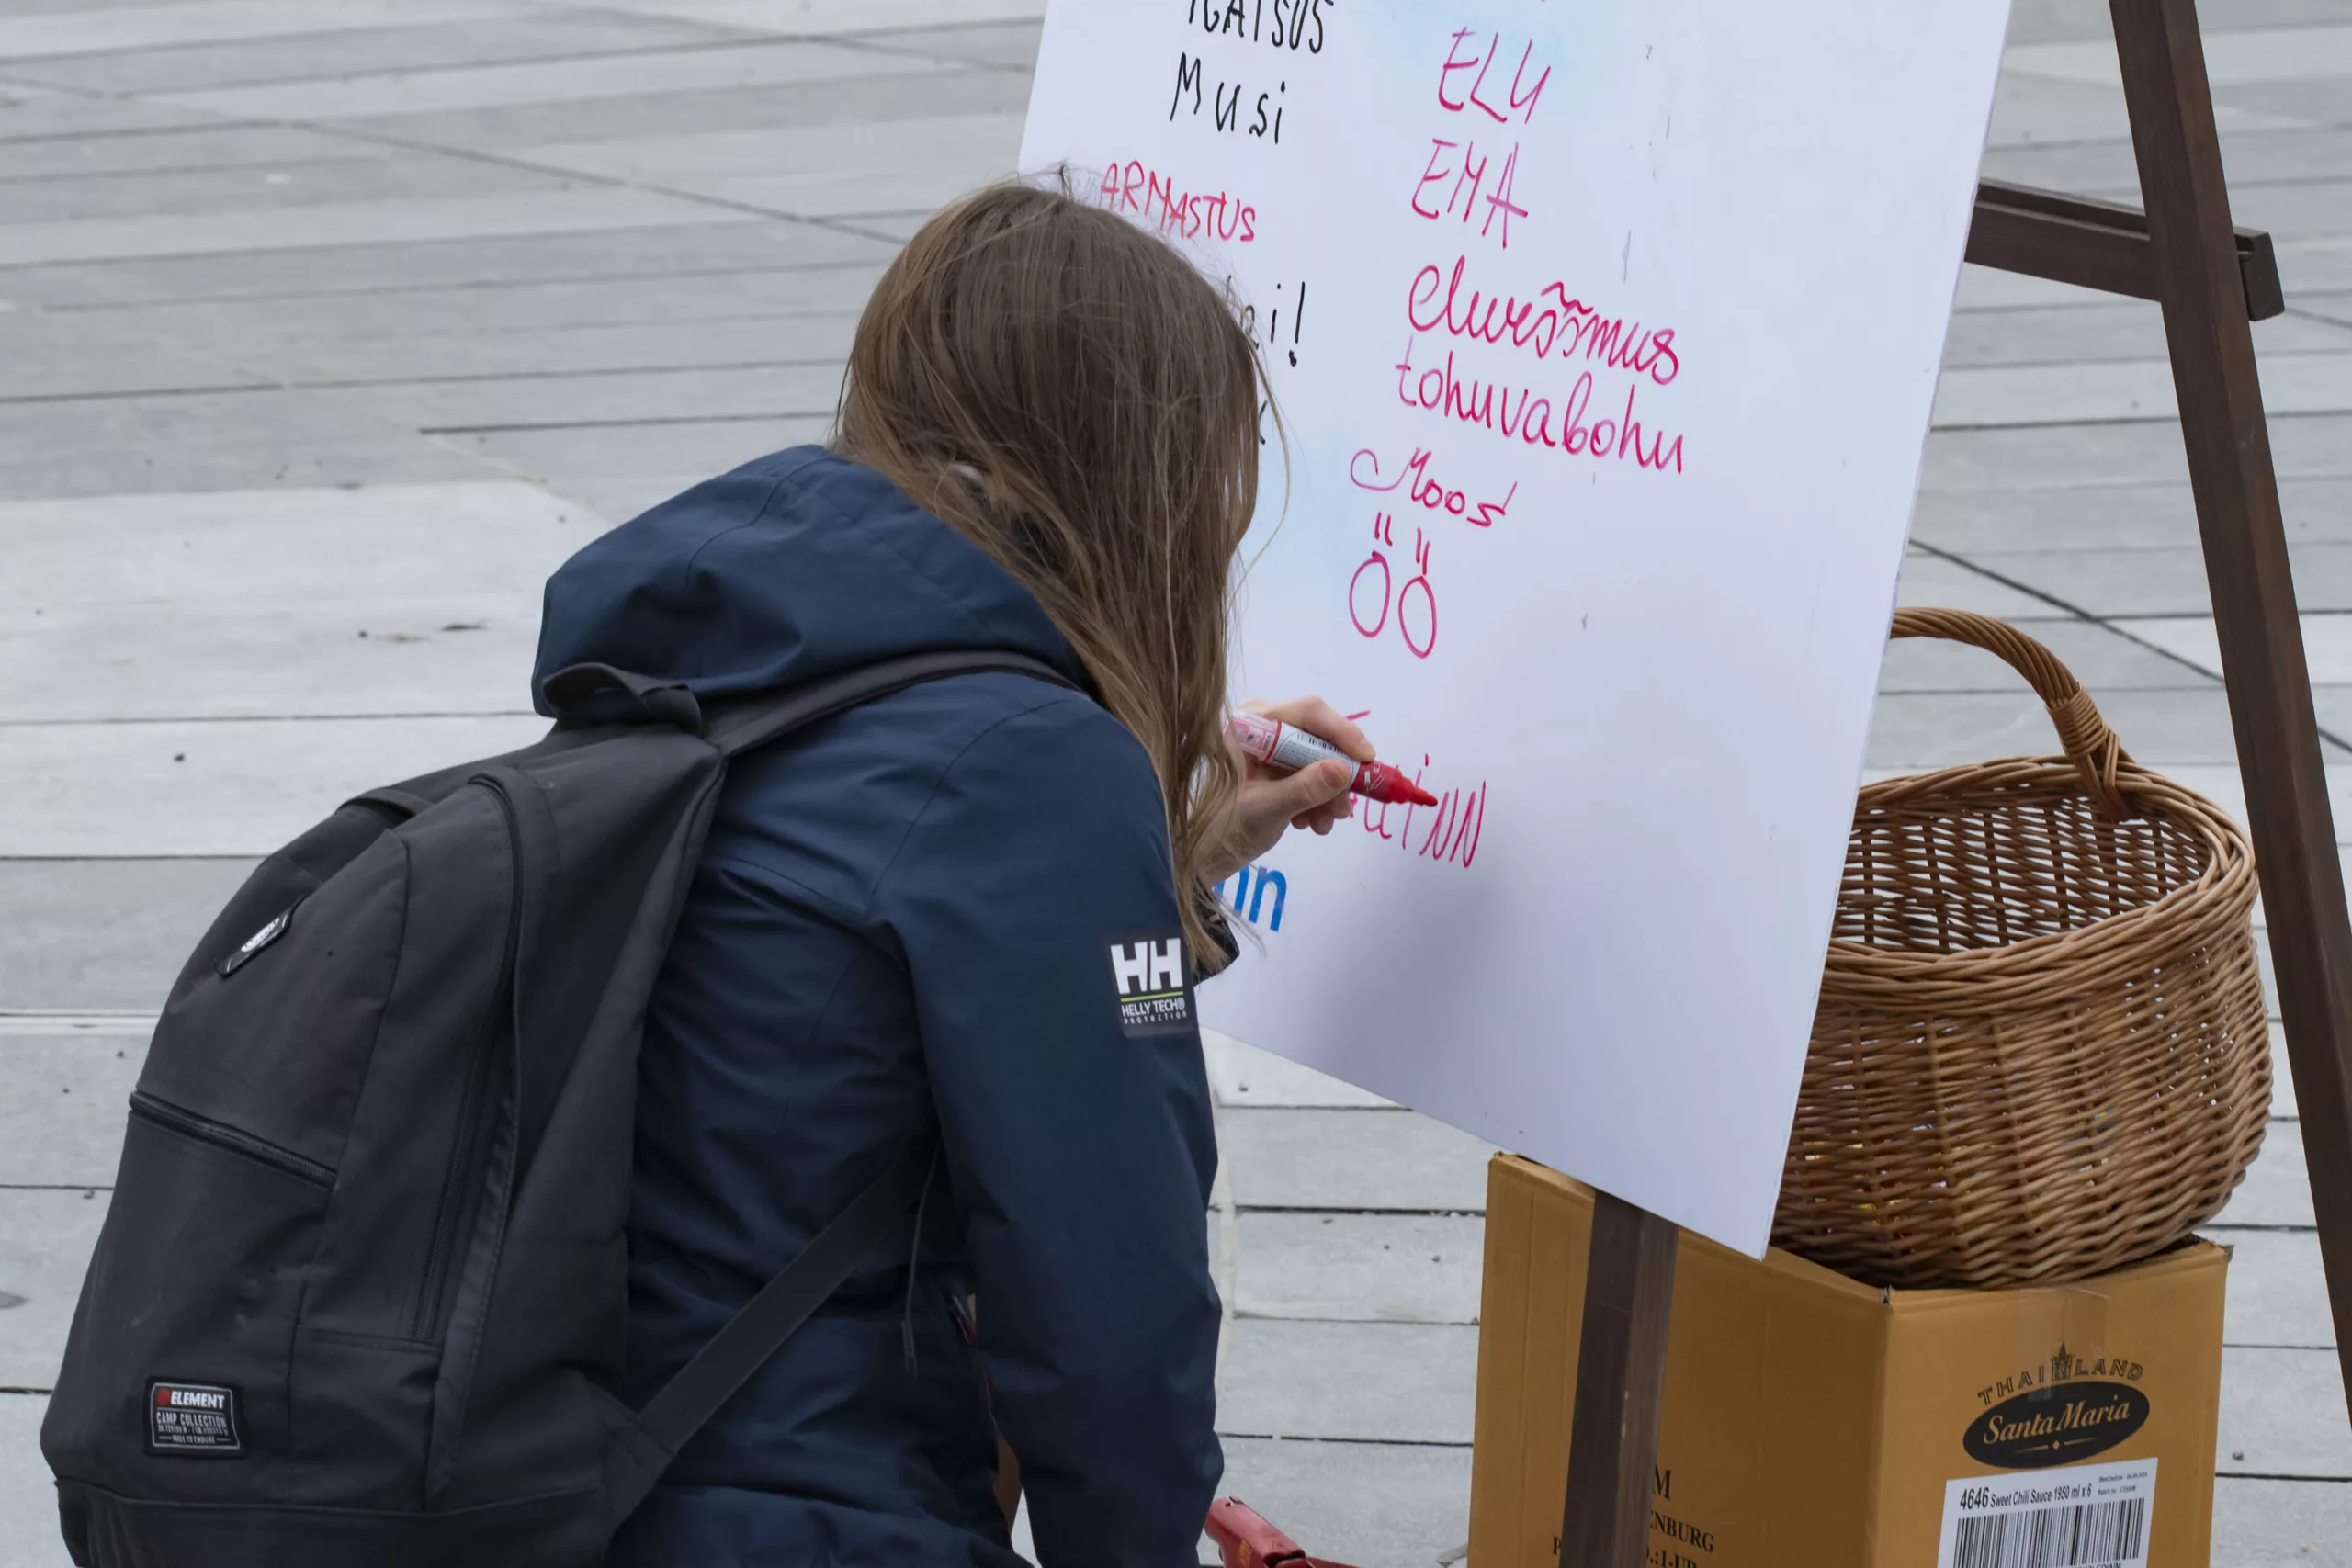 IGATSUS
Musi
ARMASTUS
ELU
EMA
elurõõmus
tohuvabohu
Moos
ÖÖ
HH
HELLY TECH®
PROTECTION
ELEMENT
CAMP COLLECTION
MADE TO ENDURE
THAILAND
Santa Maria
4646 Sweet Chili Sauce 1950 ml x 6